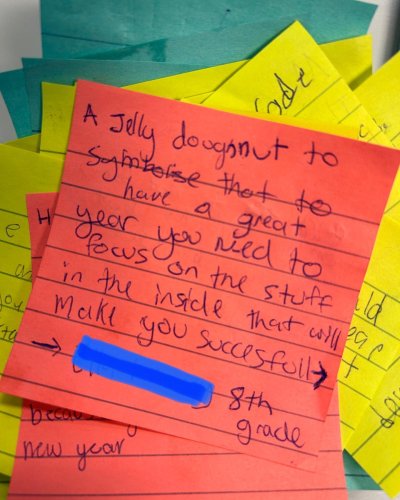 A Jelly doughnut to
Symboise that to
have a great
year you need to
focus on the stuff
in the inside that will
Make you succesfull
8th
grade
new year